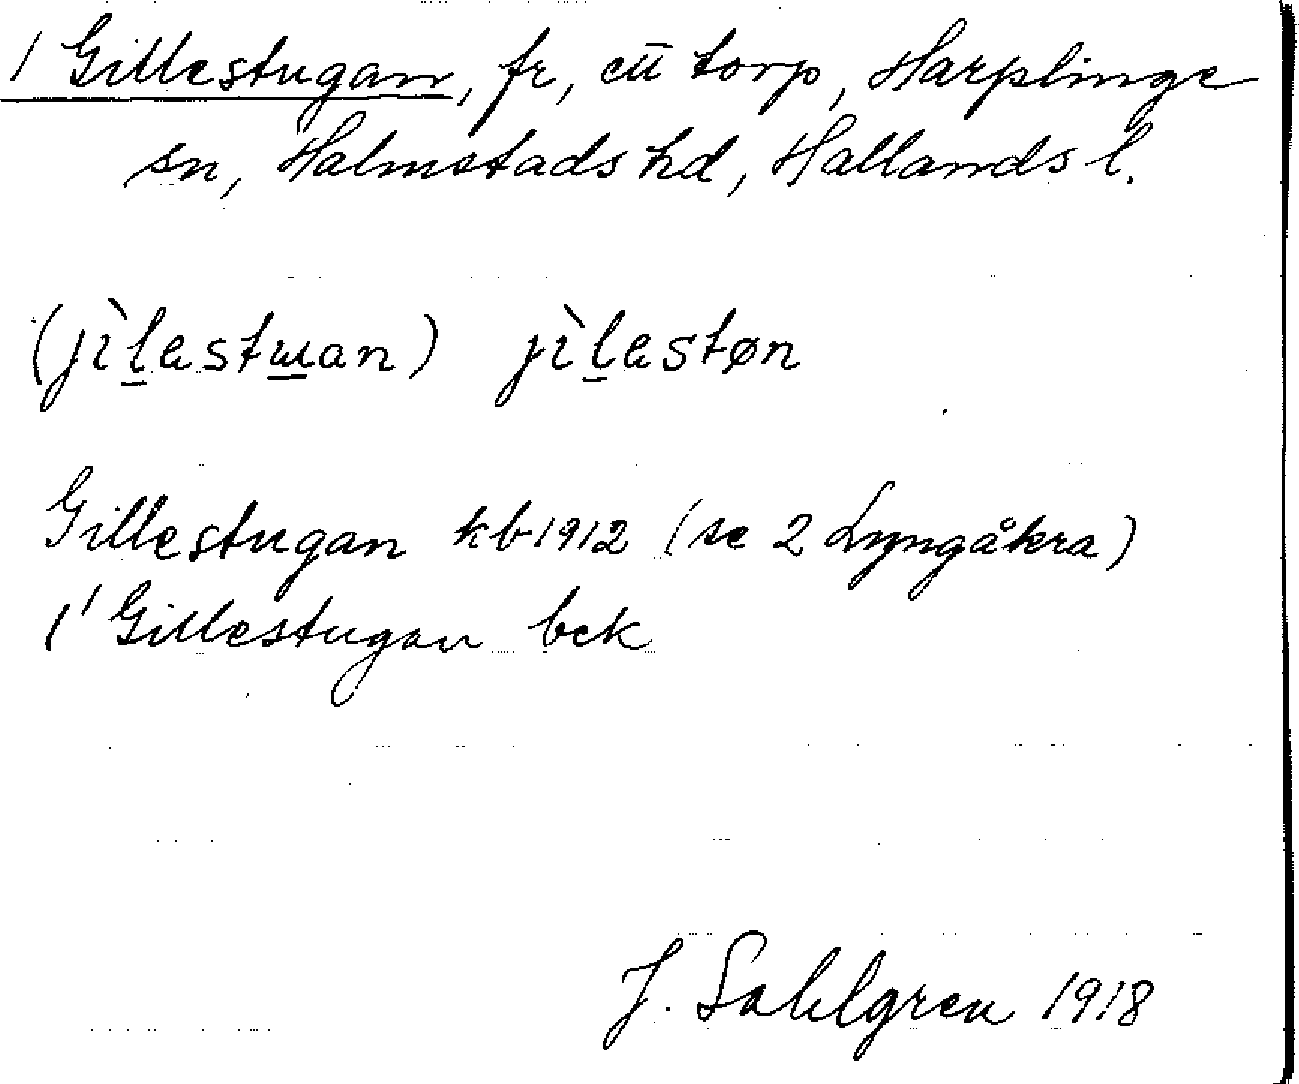 1 Gillestugan, fr, ett torp, Harplinge
sn, Halmstads hd, Hallands l.
(jìl̲ɐstɯ̲an) jìl̲ɐstøn
Gillestugan kb 1912 (se 2 Lyngåkra)
1' Gillestugan bek
J. Sahlgren 1918